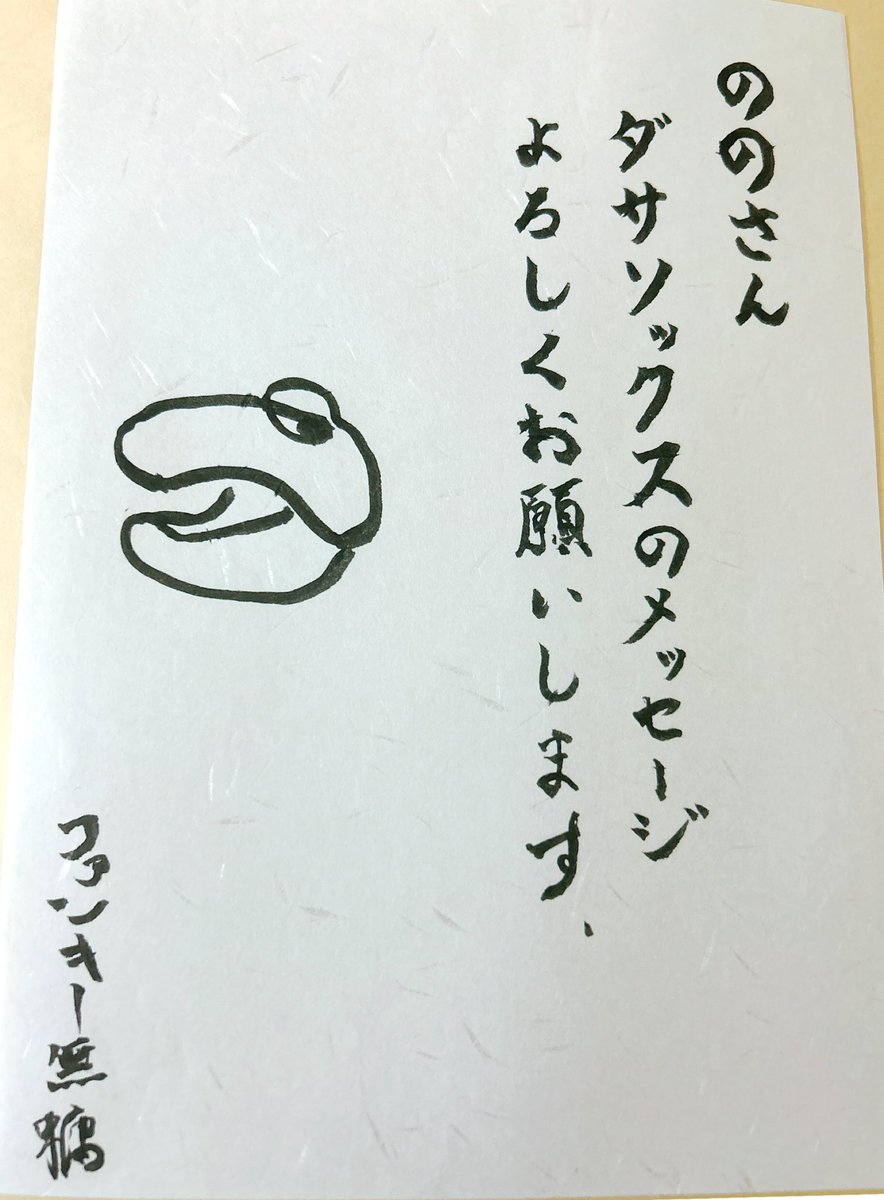 ののさん
ダサソックスのメッセージ
よろしくお願いします、
ファンキー無糖